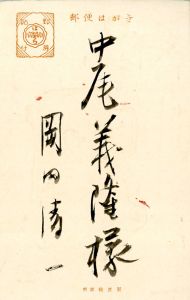 郵便はがき
中尾義隆様
岡田清一